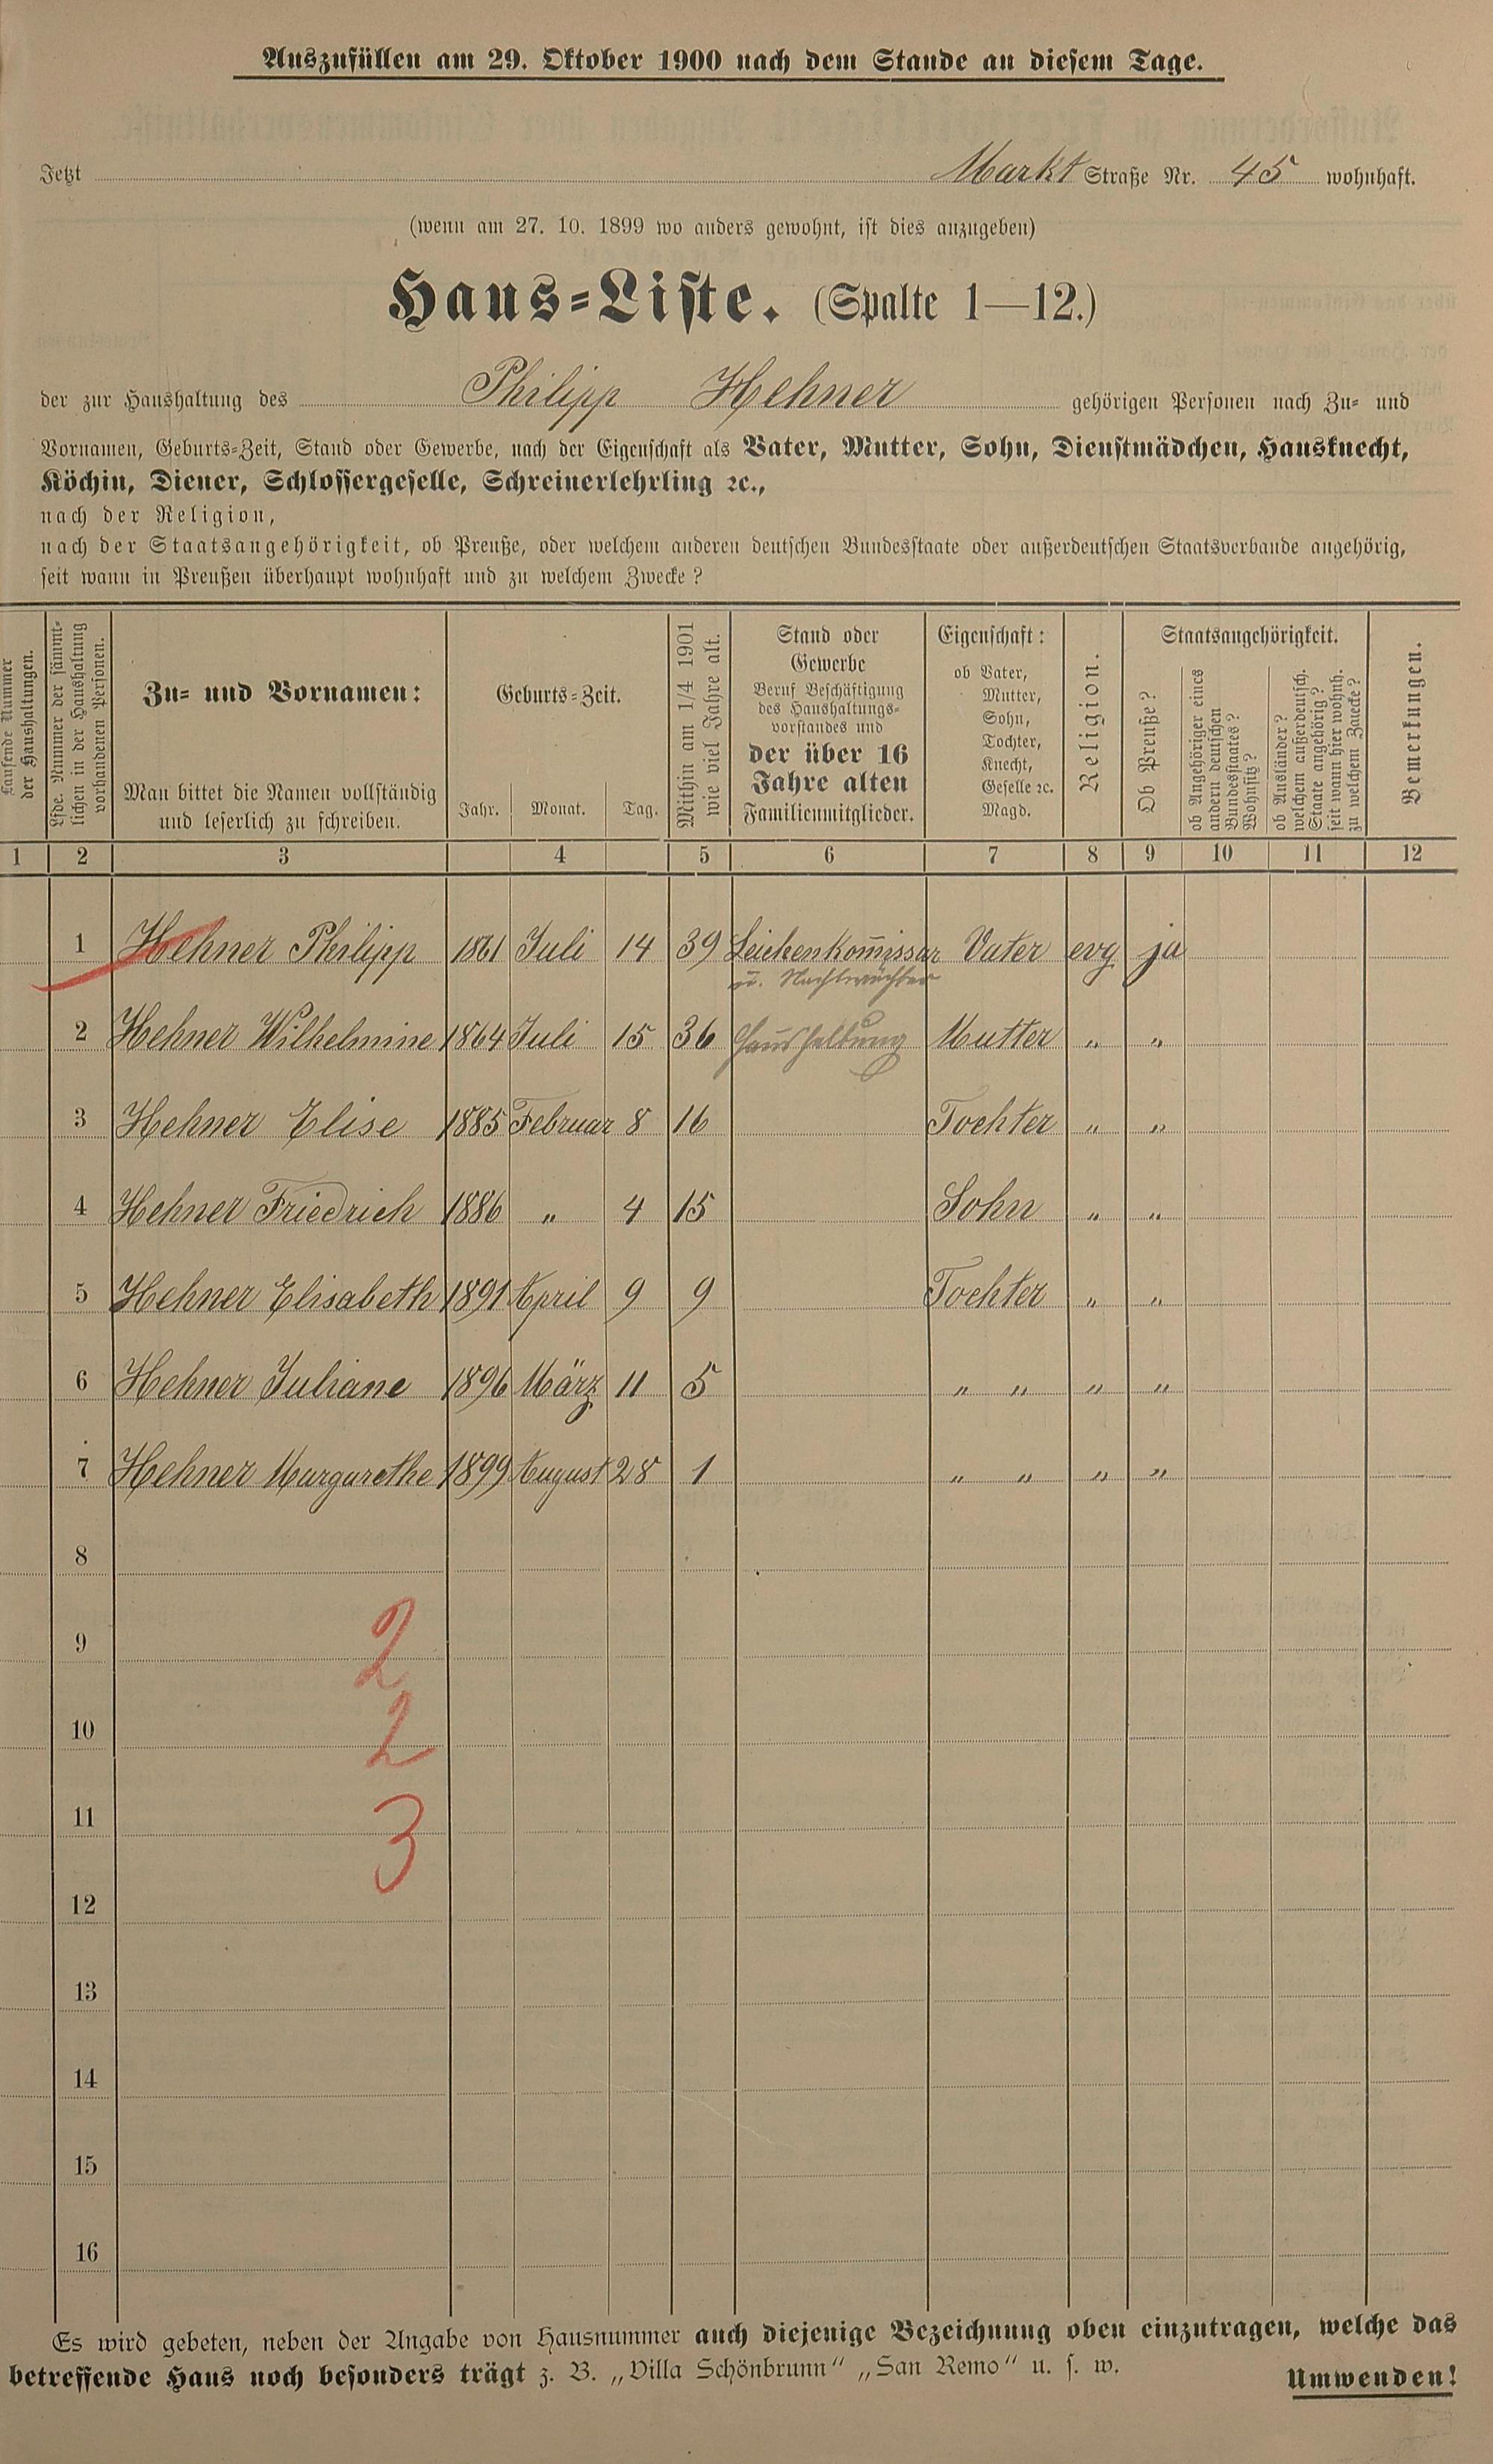 Auszufüllen am 29. Oktober 1900 nach dem Stande an diesem Tage.
Jetzt Markt Straße Nr. 45 wohnhaft.
(wenn am 27. 10. 1899 wo anders gewohnt, ist dies anzugeben)
Haus-Liste. (Spalte 1—12.)
der zur Haushaltung des Philipp Hehner gehörigen Personen nach Zu- und
Vornamen, Geburts-Zeit, Stand oder Gewerbe, nach der Eigenschaft als Vater, Mutter, Sohn, Dienstmädchen, Hausknecht,
Köchin, Diener, Schlossergeselle, Schreinerlehrling ꝛc.,
nach der Religion,
nach der Staatsangehörigkeit, ob Preuße, oder welchem anderen deutschen Bundesstaate oder außerdeutschen Staatsverbande angehörig,
seit wann in Preußen überhaupt wohnhaft und zu welchem Zwecke?
Laufende Nummer
der Haushaltungen.
Lfde. Nummer der sämmt-
lichen in der Haushaltung
vorhandenen Personen.
Zu- und Vornamen:
Man bittet die Namen vollständig
und leserlich zu schreiben.
Geburts-Zeit.
Jahr. Monat. Tag.
Mithin am 1/4 1901
wie viel Jahre alt.
Stand oder
Gewerbe
Beruf Beschäftigung
des Haushaltungs-
vorstandes und
der über 16
Jahre alten
Familienmitglieder.
Eigenschaft:
ob Vater,
Mutter,
Sohn,
Tochter,
Knecht,
Geselle ꝛc.
Magd.
Religion.
Staatsangehörigkeit.
Ob Preuße?
ob Angehöriger eines
andern deutschen
Bundesstaates?
Wohnsitz?
ob Ausländer?
welchem außerdeutsch.
Staate angehörig?
seit wann hier wohnh.
zu welchem Zwecke?
Bemerkungen.
1 2 3 4 5 6 7 8 9 10 11 12
1 Hehner Philipp 1861 Juli 14 39 Leichenkommissar Vater evg ja
u. Nachtwächter
2 Hehner Wilhelmine 1864 Juli 15 36 Haushaltung Mutter " "
3 Hehner Elise 1885 Februar 8 16 Tochter " "
4 Hehner Friedrich 1886 " 4 15 Sohn " "
5 Hehner Elisabeth 1891 April 9 9 Tochter " "
6 Hehner Juliane 1896 März 11 5 " " " "
7 Hehner Margarethe 1899 August 28 1 " " " "
8
9 2
10 2
11 3
12
13
14
15
16
Es wird gebeten, neben der Angabe von Hausnummer auch diejenige Bezeichnung oben einzutragen, welche das
betreffende Haus noch besonders trägt z. B. „Villa Schönbrunn" „San Remo" u. s. w. Umwenden!